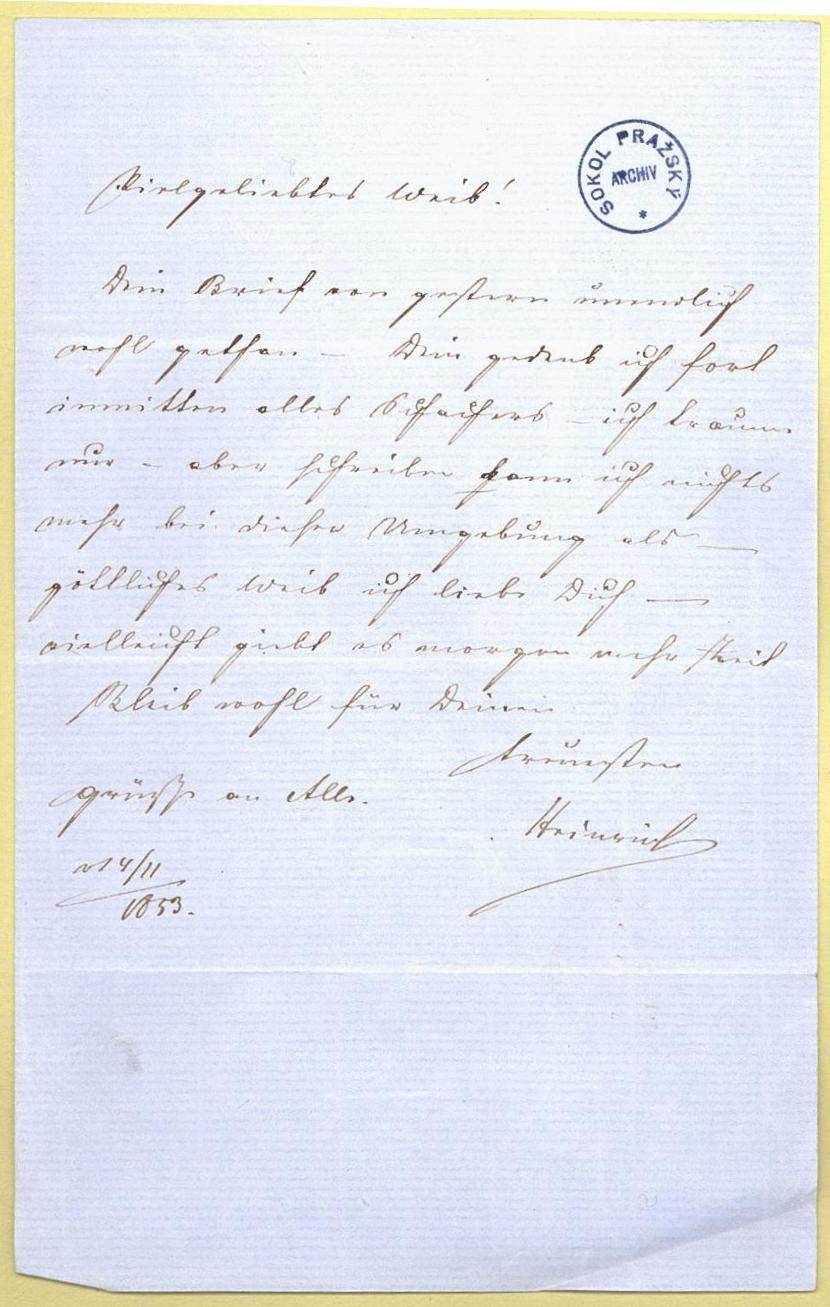 SOKOL PRAŽSKÝ
ARCHIV
Vielgeliebtes Weib!
Dein Brief von gestern unendlich
wohl gethan – Dein gedenk ich fort
inmitten alles – ich träume
nur – aber schreiben kann ich nichts
mehr bei dieser Umgebung als —
göttliches Weib ich liebe Dich —
vielleicht giebt es morgen mehr Zeit
Bleib wohl für Deinen
treuesten
Grüsse an Alle.
Heinrich
4/11
1853.